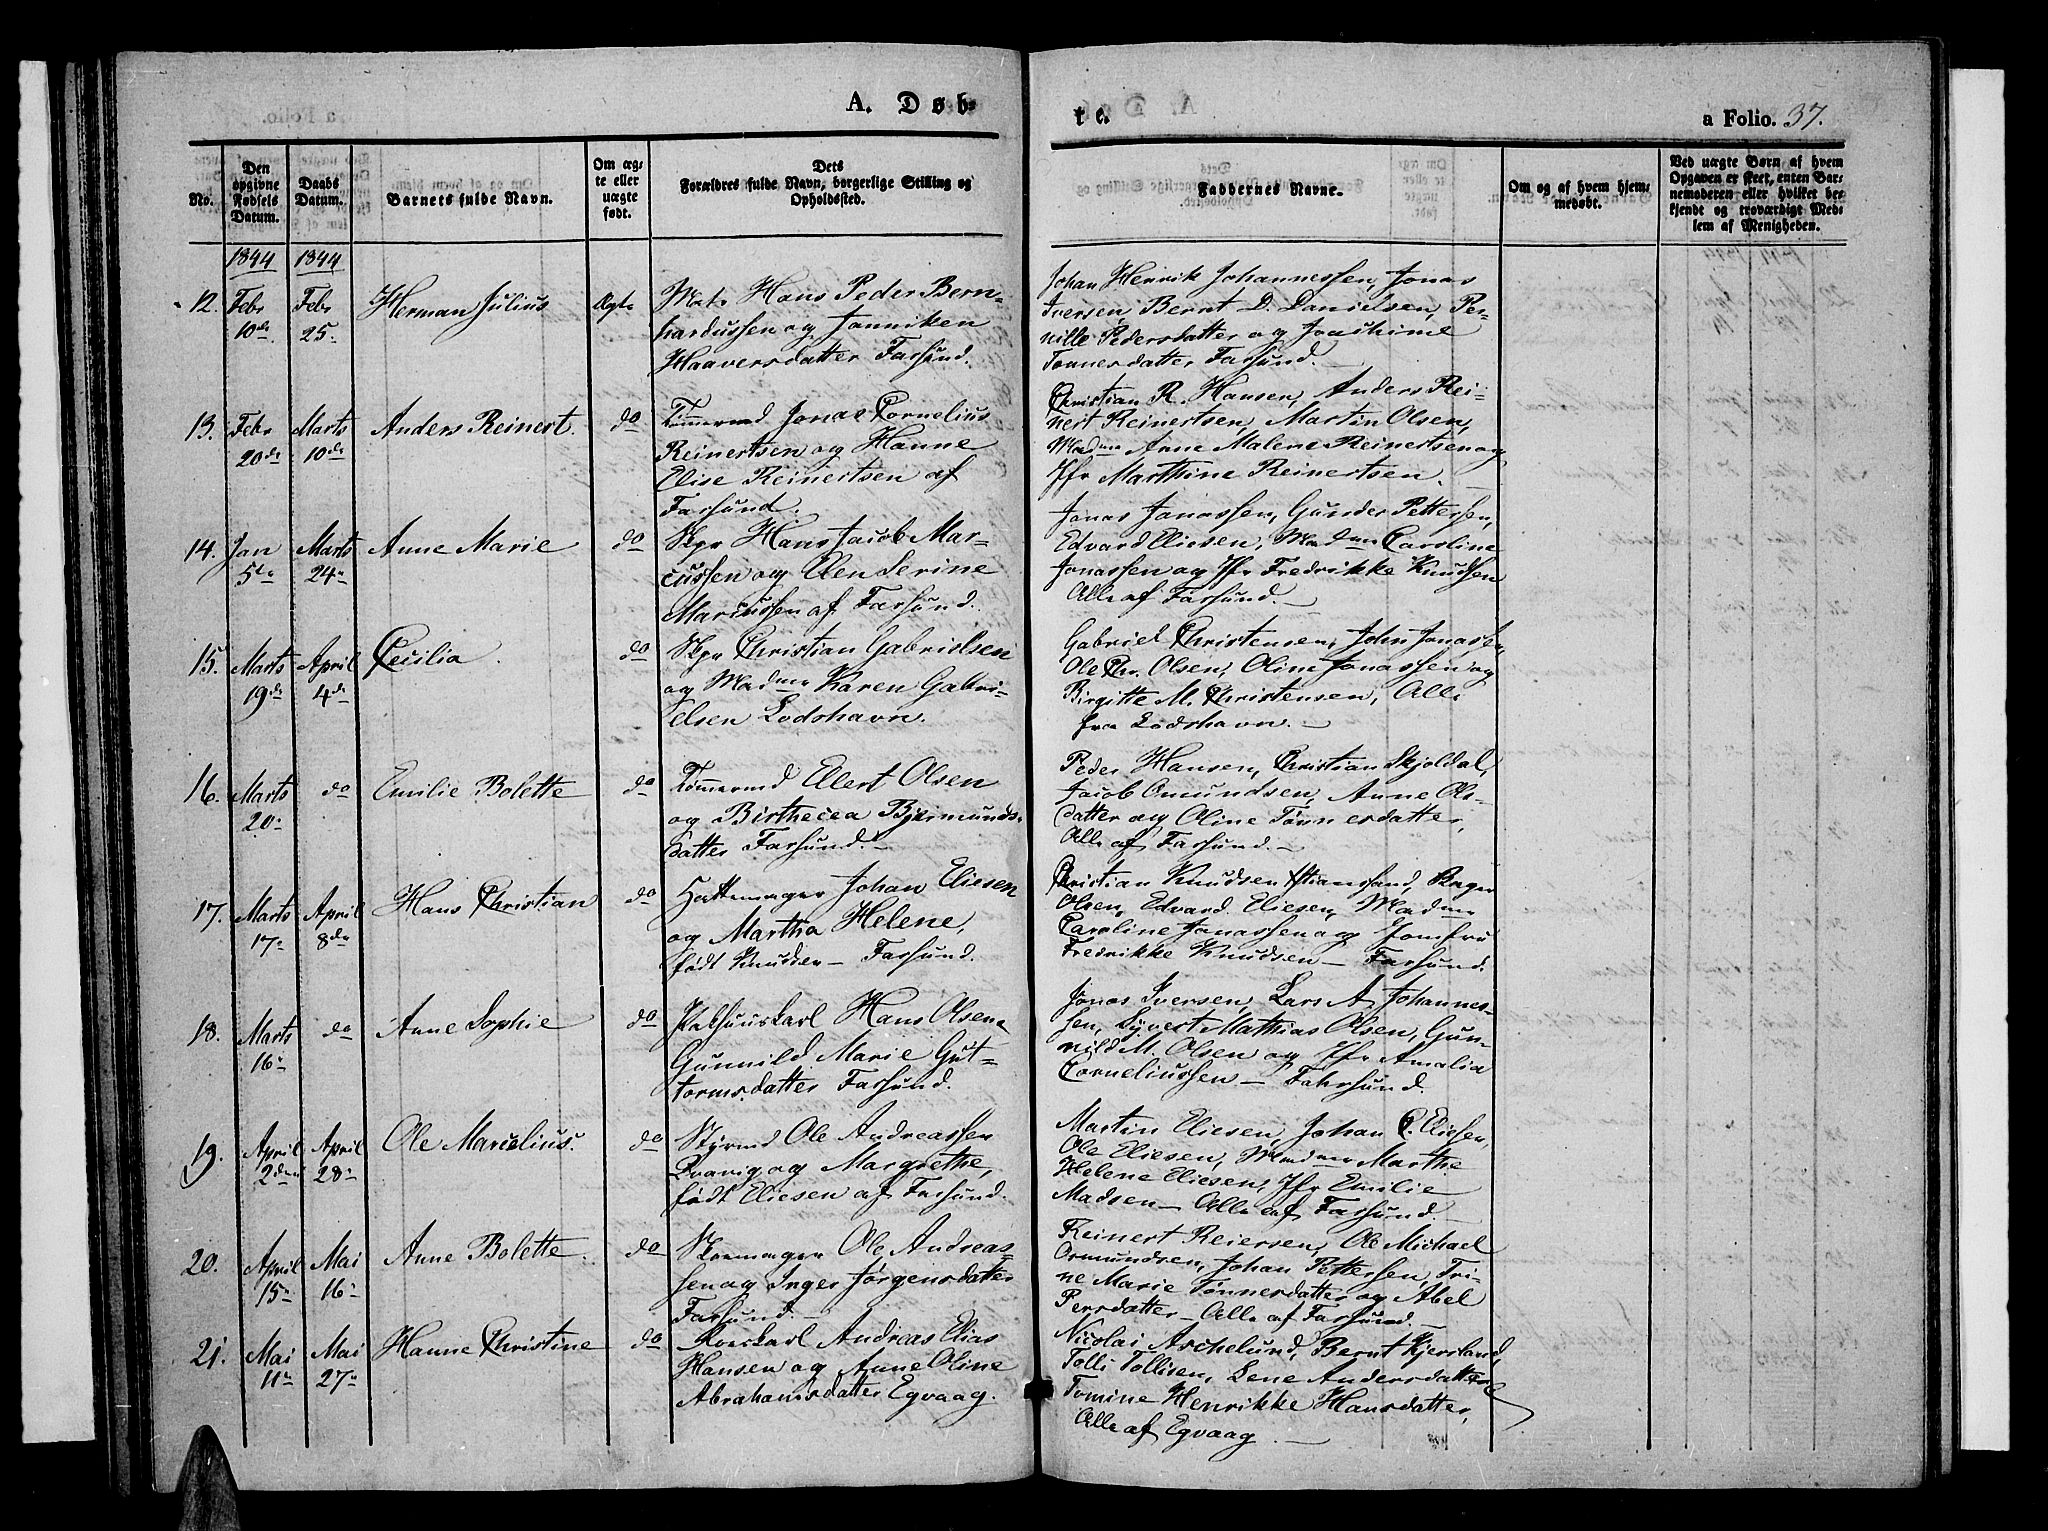 A. Døb-
te.
a Folio. 37.
No.
Den opgivne Fødsels Datum.
Daabs Datum.
Barnets fulde Navn.
Om ægte eller uægte født.
Dets Forældres fulde Navn, borgerlige Stilling og Opholdssted.
Faddernes Navne.
Om og af hvem hjemmedøbt.
Ved uægte Børn af hvem Opgaven er skeet, enten Barnemoderen eller hvilket bekjendt og troværdigt Medlem af Menigheden.
1844 1844
12. Febr 10de Febr 25 Herman Julius Ægte
Mats Hans Peder Bern-
hardussen og Janniken
Haaversdatter Farsund.
Johan Henrik Johannessen, Jonas
Iversen, Bernt D. Danielsen, Per-
nille Pedersdatter og Joachime
Tønnesdatter, Farsund.
13. Febr 20de Marts 10de Anders Reinert. do
Tømmermd Jonas Cornelius
Reinertsen og Hanne
Elise Reinertsen af
Farsund.
Christian R. Hansen, Anders Rei-
nert Reinertsen, Martin Olsen,
Madme Anne Malene Reinertsen og
Jfr Marthine Reinertsen.
14. Jan 5te Marts 24 Anne Marie do
Skpr Hans Jacob Mar-
cussen og Elen Serine
Marcussen af Farsund.
Jonas Jonassen, Gunder Pettersen,
Edvard Eliesen, Madme Caroline
Jonassen og Jfr Fredrikke Knudsen
Alle af Farsund.
15. Marts 19de April 4de Cecilia. do
Skpr Christian Gabrielsen
og Madme Karen Gabri-
elsen Lodshavn.
Gabriel Christensen, John Jonassen,
Ole Chr. Olsen, Oline Jonassen og
Birgitte M. Christensen, Alle
fra Lodshavn.
16. Marts 20 do Emilie Bolette do
Tømmermd Ellert Olsen
og Birthecea Bjermunds-
datter Farsund.
Peder Hansen, Christian Skjoldal,
Jacob Omundsen, Anne Ols-
datter og Oline Tønnesdatter,
Alle af Farsund.
17. Marts 17 April 8de Hans Christian do
Hattemager Johan Eliesen
og Martha Helene,
født Knudsen - Farsund.
Christian Knudsen Xstiansand, Roger
Olsen, Edvard Eliesen, Madme
Caroline Jonassen og Jomfru
Fredrikke Knudsen - Farsund.
18. Marts 16 do Anne Sophie do
Pakhuuskarl Hans Olsen
Gunnild Marie Gut-
tormsdatter Farsund.
Jonas Iversen, Lars A. Johannes-
sen, Syvert Mathias Olsen, Gun-
nild M. Olsen og Jfr Amalia
Corneliussen - Fahrsund.
19. April 2den April 28 Ole Marcelius. do
Styrmd Ole Andreassen
Qvavig og Margrethe,
født Eliesen af Farsund.
Martin Eliesen, Johan C. Eliesen,
Ole Eliesen, Madme Marthe
Helene Eliesen, Jfr Emilie
Madsen - Alle af Farsund.
20. April 15 Mai 16 Anne Bolette. do
Skoemager Ole Andreas-
sen og Inger Jørgensdatter
Farsund.
Reinert Reiersen, Ole Michael
Ormundsen, Johan Pettersen, Tri-
ne Marie Tønnesdatter og Abel
Persdatter - Alle af Farsund.
21. Mai 11 Mai 27 Hanne Christine do
Andreas Elias
Hansen og Anne Oline
Abrahamsdatter Egvaag.
Nicolai Aschelund, Bernt Kjersland,
Tolli Tollisen, Lene Andersdatter
Tomine Henrikke Hansdatter,
Alle af Egvaag